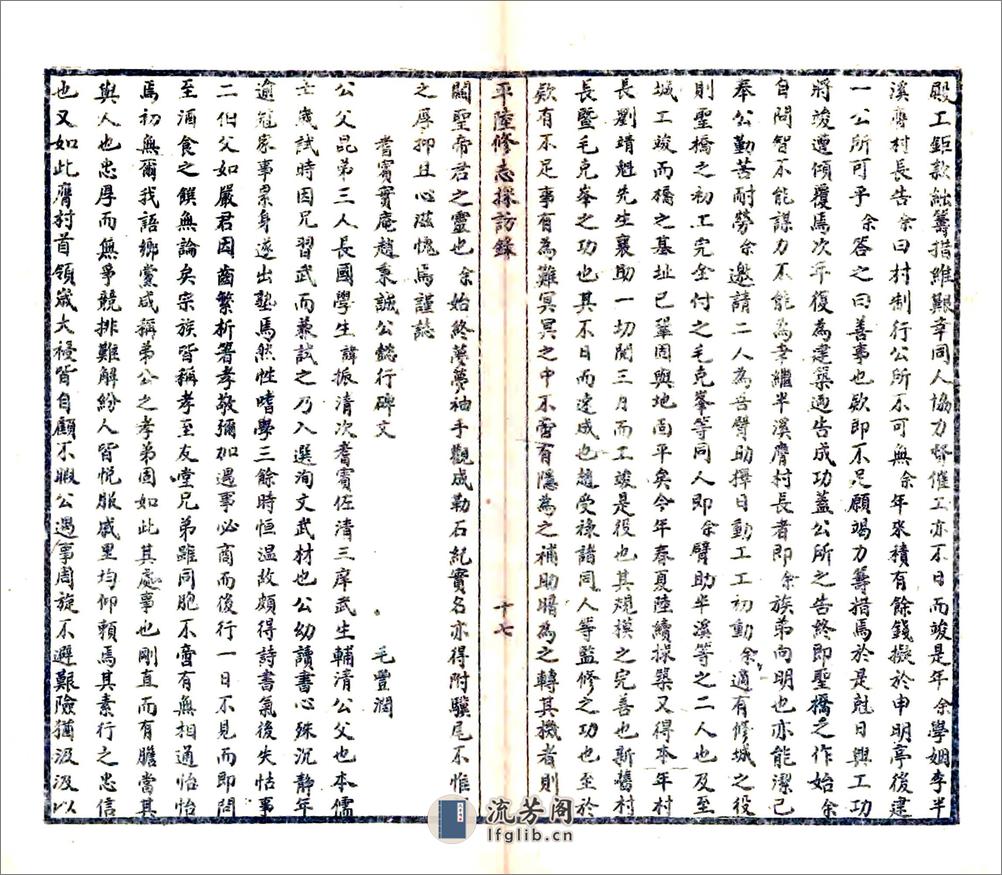 殿工鉅款絀籌措維艱幸同人協力督催工亦不日而竣是年余學姻李半
溪膺村長告余曰村制行公所不可無余年來積有餘錢擬於申明亭後建
一公所可乎余答之曰善事也欵即不足願竭力籌措焉於是尅日興工功
將竣遭傾覆焉次年復為建築迺告成功蓋公所之告終即聖橋之作始余
自問智不能謀力不能為幸繼半溪膺村長者即余族弟向明也亦能潔己
奉公勤苦耐勞余邀請二人為吾臂助擇日動工工初動余適有修城之役
則聖橋之初工完全付之毛克峯等同人即余臂助半溪等之二人也及至
城工竣而橋之基址已鞏固與地面平矣今年春夏陸續採築又得本年村
長劉靖魁先生襄助一切閱三月而工竣是役也其規模之完善也斯舊村
長暨毛克峯之功也其不日而速成也趙受祿諸同人等監修之功也至於
欵有不足事有為難冥冥之中不啻有隱為之補助暗為之轉其機者則
關聖帝君之靈也余始終夢夢袖手觀成勒石紀實名亦得附驥尾不惟
之辱抑且心滋愧焉謹誌
耆賓實庵趙秉誠公懿行碑文
毛豐潤
公父昆弟三人長國學生諱振清次耆賓佐清三庠武生輔清公父也本儒
士歲試時因兄習武而兼試之乃入選洵文武材也公幼讀書心殊沉靜年
逾冠家事累身遂出塾焉然性嗜學三餘時恒溫故頗得詩書氣後失怙事
二伯父如嚴君因齒繁析箸孝敬彌加遇事必商而後行一日不見而即問
至酒食之饌無論矣宗族皆稱孝至友堂兄弟雖同胞不啻有無相通怡怡
焉初無爾我語鄉黨咸稱弟公之孝弟固如此其處事也剛直而有膽當其
與人也忠厚而無爭競排難解紛人皆悅服戚里均仰賴焉其素行之忠信
也又如此膺村首領歲大祲皆自顧不暇公遇事周旋不避艱險猶汲汲以
平陸修志採訪錄
十七
流芳阁
lfglib.cn